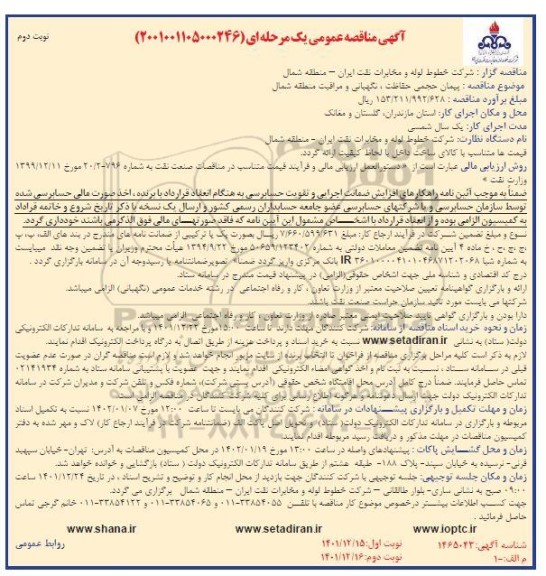 آگهی مناقصه عمومی یک مرحله ای (۲۰۰۱۰۰۱۱۰۵۰۰۰۲۴۶)
نوبت دوم
مناقصه گزار : شرکت خطوط لوله و مخابرات نفت ایران – منطقه شمال
موضوع مناقصه : پیمان حجمی حفاظت ، نگهبانی و مراقبت منطقه شمال
مبلغ برآورد مناقصه : ۱۵۳/۲۱۱/۹۹۲/۶۲۸ ریال
محل و مکان اجرای کار: استان مازندران، گلستان و مغانک
مدت اجرای کار: یک سال شمسی
نام دستگاه نظارت: شرکت خطوط لوله و مخابرات نفت ایران - منطقه شمال
قیمت ها متناسب با کالای ساخت داخل با لحاظ کیفیت ارائه گردد.
روش ارزیابی مالی عبارت است از : دستورالعمل ارزیابی مالی و فرآیند قیمت متناسب در مناقصات صنعت نفت به شماره ۷۹۶-۲۰/۲ مورخ ۱۳۹۹/۱۲/۱۱
وزارت نفت
ضمناً به موجب آئین نامه راهکارهای افزایش ضمانت اجرایی و تقویت حسابرسی به هنگام انعقاد قرارداد با برنده ، اخذ صورت مالی حسابرسی شده
توسط سازمان حسابرسی و یا شرکتهای حسابرسی عضو جامعه حسابداران رسمی کشور و ارسال یک نسخه با ذکر تاریخ شروع و خاتمه قرارداد
به کمیسیون الزامی بوده و از انعقاد قرارداد با اشخاص مشمول این آیین نامه که فاقد صورتهای مالی فوق الذکر می باشند خودداری گردد.
نوع و مبلغ تضمین شرکت در فرآیند ارجاع کار: مبلغ ۷/۶۶۰/۵۹۹/۶۳۱ ریال بصورت یک یا ترکیبی از ضمانت نامه های مندرج در بند های الف، ب، پ
ج، چ، ح ، خ ماده ۴ آیین نامه تضمین معاملات دولتی به شماره ۱۲۳۴۰۲/ت۵۰۶۵۹ مورخ ۱۳۹۴/۹/۲۲ هیأت محترم وزیران یا تضمین وجه نقد میبایست
به شماره شبا IR ۳۶۰۱۰۰۰۰۴۱۰۱۰۴۶۸۷۱۲۰۲۰۶۸ بانک مرکزی واریز گردد ضمناً تصویر ضمانتنامه یا رسید وجه آن در سامانه بارگزاری گردد .
درج کد اقتصادی و شناسه ملی جهت اشخاص حقوقی(الزامی) در پیشنهاد قیمت مندرج در سامانه ستاد.
ارائه و بارگزاری گواهینامه تعیین صلاحیت معتبر از وزارت تعاون ، کار و رفاه اجتماعی در رشته خدمات عمومی (نگهبانی) الزامی میباشد.
شرکتها می بایست مورد تائید سازمان حراست صنعت نفت باشند.
دارا بودن و بارگزاری گواهی تایید صلاحیت ایمنی معتبر صادره از وزارت تعاون ، کار ، و رفاه اجتماعی الزامی میباشد.
زمان و نحوه خرید اسناد مناقصه از سامانه: شرکت کنندگان مهلت دارند تا ساعت ۱۵:۰۰ مورخ با مراجعه به سامانه تدارکات الکترونیکی
دولت( ستاد) به نشانی www.setadiran.ir نسبت به خرید اسناد و پرداخت هزینه از طریق اتصال به درگاه پرداخت الکترونیک اقدام نمایند.
لازم به ذکر است کلیه مراحل برگزاری مناقصه از فراخوان تا انتخاب برنده از سایت مزبور انجام خواهد شد و لازم است مناقصه گران در صورت عدم عضویت
قبلی در سامانه ستاد ، نسبت به ثبت نام و اخذ گواهی امضاء الکترونیکی اقدام نمایند و جهت عضویت با پشتیبانی سامانه ستاد به شماره ۰۲۱۴۱۹۳۴
تماس حاصل فرمایند. ضمناً درج کامل آدرس محل اقامتگاه شخص حقوقی (آدرس پستی شرکت)، شماره فکس و تلفن شرکت و مدیران شرکت در سامانه
تدارکات الکترونیک دولت جهت ارسال دعوتنامه و هرگونه اطلاع رسانی برای کلیه شرکت کنندگان در مناقصه الزامی است.
زمان و مهلت تکمیل و بارگزاری پیشنهادات در سامانه : شرکت کنندگان می بایست تا ساعت ۱۲:۰۰ مورخ ۱۴۰۲/۰۱/۰۷ نسبت به تکمیل اسناد
مربوطه و بارگزاری در سامانه تدارکات الکترونیک دولت( ستاد) و تحویل اصل پاکت الف (ضمانتنامه شرکت در فرآیند ارجاع کار) لاک و مهر شده به دفتر
کمیسیون مناقصات در مهلت مذکور و دریافت رسید مربوطه اقدام نمایند.
زمان و محل گشایش پاکات : پیشنهادهای واصله در ساعت ۱۳:۰۰ مورخ ۱۴۰۲/۰۱/۱۹ در محل کمیسیون مناقصات به آدرس: تهران- خیابان سپهبد
قرنی- نرسیده به خیابان سپند- پلاک ۱۸۸- طبقه هشتم از طریق سامانه تدارکات الکترونیک دولت ( ستاد) بازگشایی و خوانده خواهد شد.
زمان و مکان جلسه توجیهی: جلسه توجیهی با شرکت کنندگان جهت بازدید از محل انجام کار و توضیح و تشریح اسناد ، در تاریخ ۱۴۰۱/۱۲/۲۴ ساعت
۰۹:۰۰ صبح به نشانی ساری- بلوار طالقانی – شرکت خطوط لوله و مخابرات نفت ایران – منطقه شمال برگزاری می گردد.
جهت کسب اطلاعات بیشتر درخصوص موضوع کار مناقصه با تلفن ۳۳۸۵۴۰۵۵-۰۱۱ و ۳۳۸۵۴۰۶۵-۰۱۱ و ۳۳۸۵۴۱۲۲-۰۱۱ خانم گرجی تماس
حاصل فرمائید .
www.shana.ir www.setadiran.ir www.ioptc.ir
شناسه آگهی: ۱۴۶۵۰۴۳
نوبت اول: ۱۴۰۱/۱۲/۱۵
روابط عمومی
م الف: ۱۰
نوبت دوم: ۱۴۰۱/۱۲/۱۶